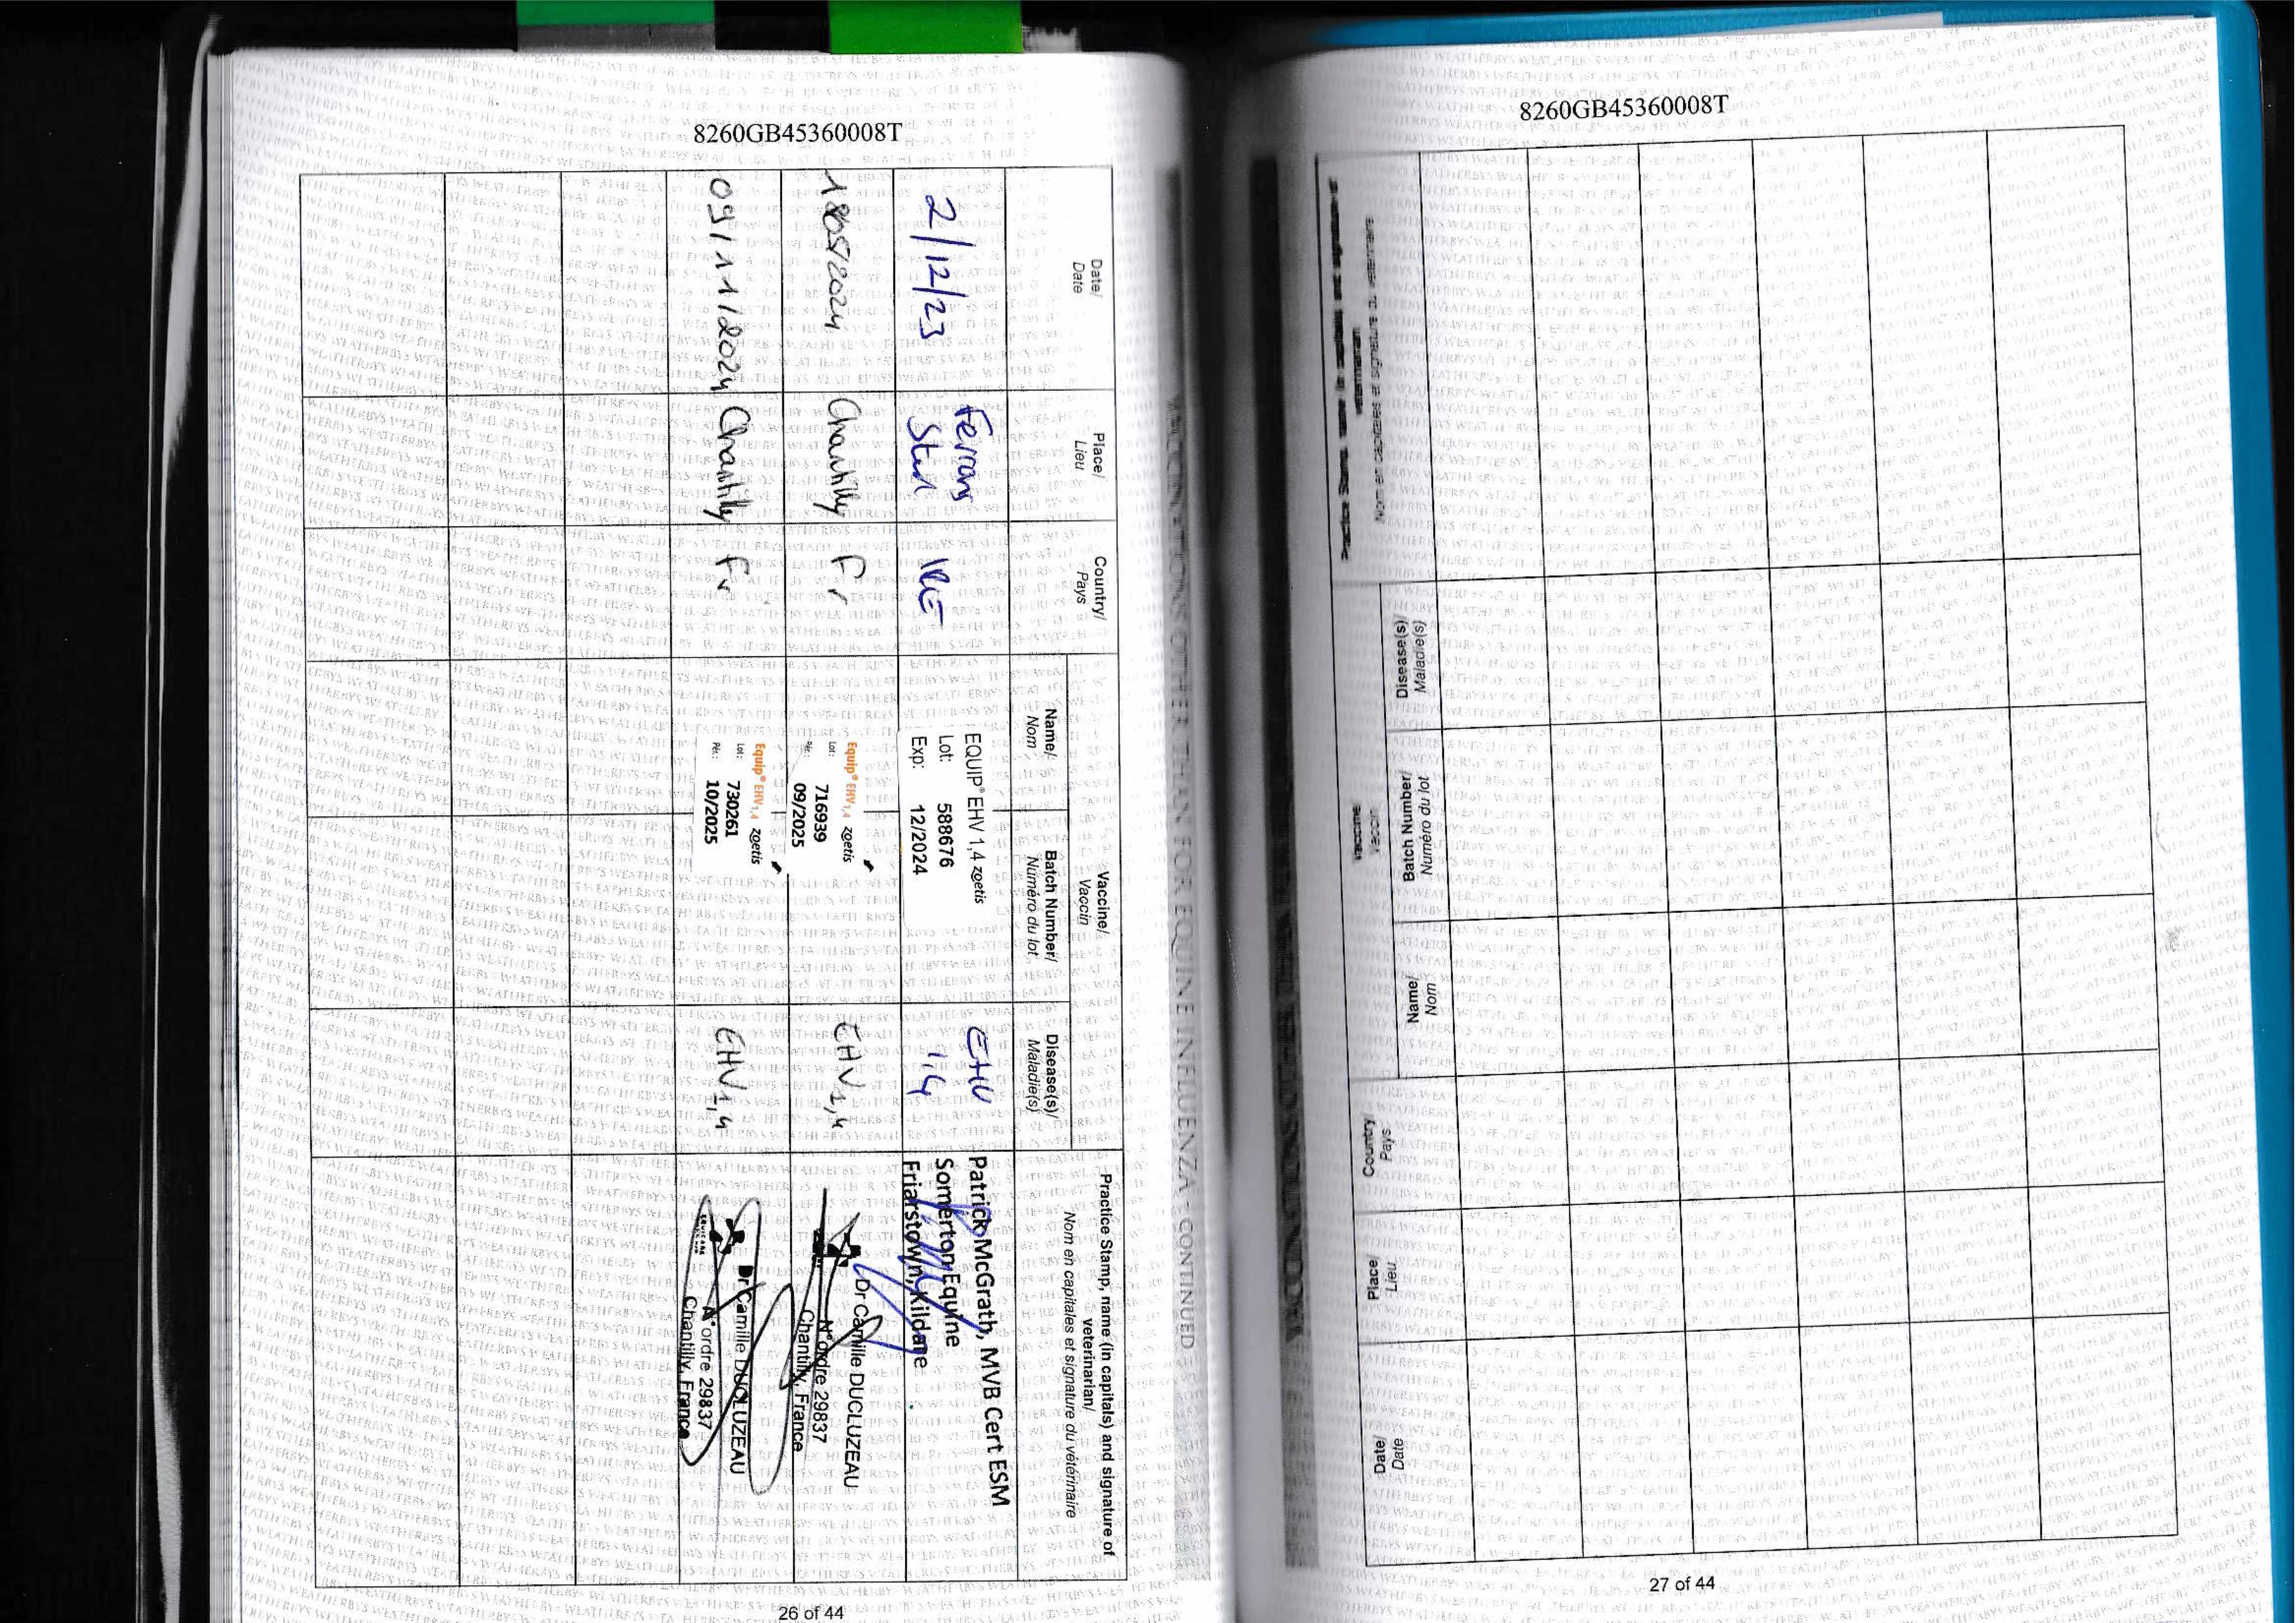 8260GB45360008T
VACCINATIONS OTHER THAN FOR EQUINE INFLUENZA - CONTINUED
Date/
Date
Place/
Lieu
Country/
Pays
Vaccine/
Vaccin
Name/
Nom
Batch Number/
Numéro du lot
Disease(s)/
Maladie(s)
Practice Stamp, name (in capitals) and signature of
veterinarian/
Nom en capitales et signature du vétérinaire
2/12/23
Ferrans
Stud
IRE
EQUIP® EHV 1,4 zoetis
Lot: 588676
Exp: 12/2024
EHV
1,4
Patrick McGrath, MVB Cert ESM
Somerton Equine
Friarstown, Kildare
18/05/2024
Chantilly
Fr
Equip® EHV1,4 zoetis
Lot: 716939
Pér.: 09/2025
EHV 1,4
Dr Camille DUCLUZEAU
N° ordre 29837
Chantilly, France
09/11/2024
Chantilly
Fr
Equip® EHV1,4 zoetis
Lot: 730261
Pér.: 10/2025
EHV 1,4
Dr Camille DUCLUZEAU
N° ordre 29837
Chantilly, France
26 of 44
8260GB45360008T
Date/
Date
Place/
Lieu
Country/
Pays
Vaccine
Vaccin
Name/
Nom
Batch Number/
Numéro du lot
Disease(s)/
Maladie(s)
Practice Stamp, name (in capitals) and signature of
veterinarian
Nom en capitales et signature du vétérinaire
27 of 44